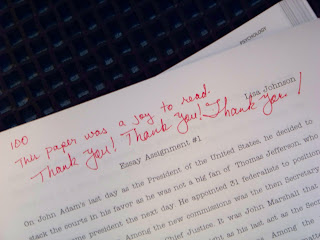 Lisa Johnson
100
This paper was a joy to read.
Thank You! Thank you! Thank you!
Essay Assignment #1
On John Adam's last day as the President of the United States, he decided to
stack the courts in his favor as he was not a big fan of Thomas Jefferson, who
president the next day. He appointed 31 federalists to position
Among the new commissions was the then Secretary
Chief Justice. It was John Marshall that
as his last act as the
Among the